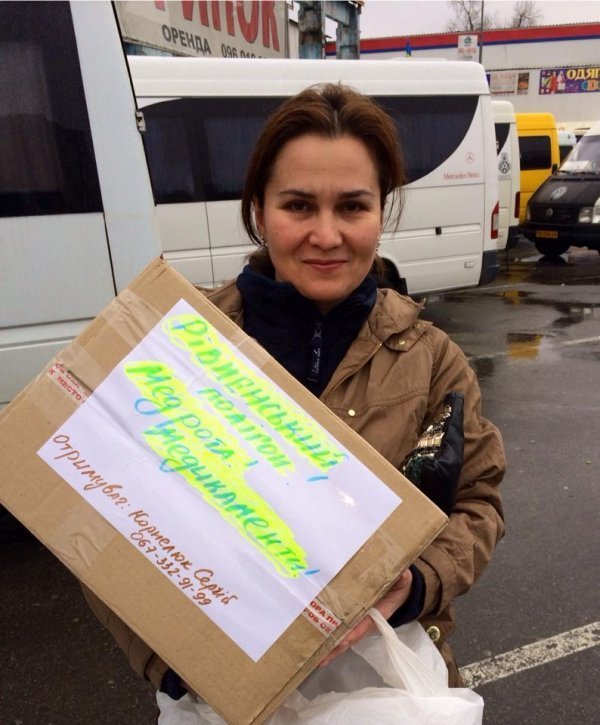 РИНОК
ОРЕНДА
096
Mercedes-Benz
ОДЯГ
Рівненський
полігон!
Медрота!
Медикаменти!
Отримувач: Корнелюк Сергій
067-332-91-99